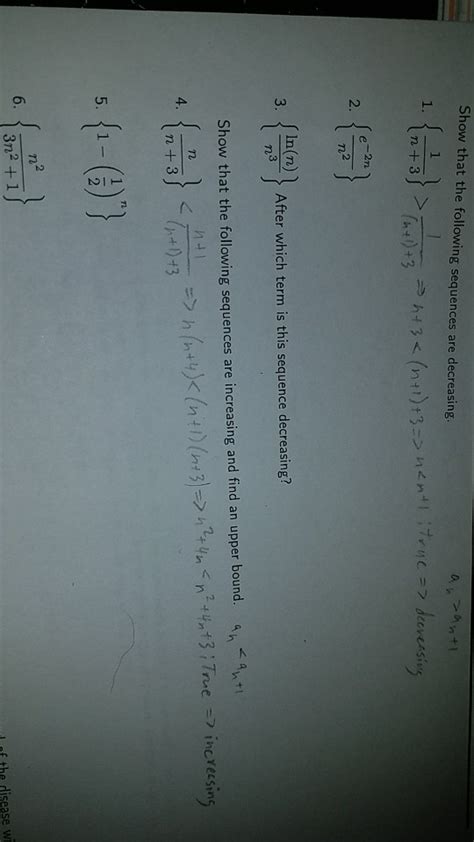 Show that the following sequences are decreasing.
a_n > a_n+1
1. {1/(n + 3)} > 1/((n+1)+3) => n+3 < (n+1)+3 => n < n+1 ; True => decreasing
2. {e^(-2n)/n^2}
3. {ln(n)/n^3} After which term is this sequence decreasing?
Show that the following sequences are increasing and find an upper bound. a_n < a_n+1
4. {n/(n + 3)} < (n+1)/((n+1)+3) => n(n+4) < (n+1)(n+3) => n^2+4n < n^2+4n+3 ; True => increasing
5. {1 − (1/2)^n}
6. {n^2/(3n^2 + 1)}
of the disease